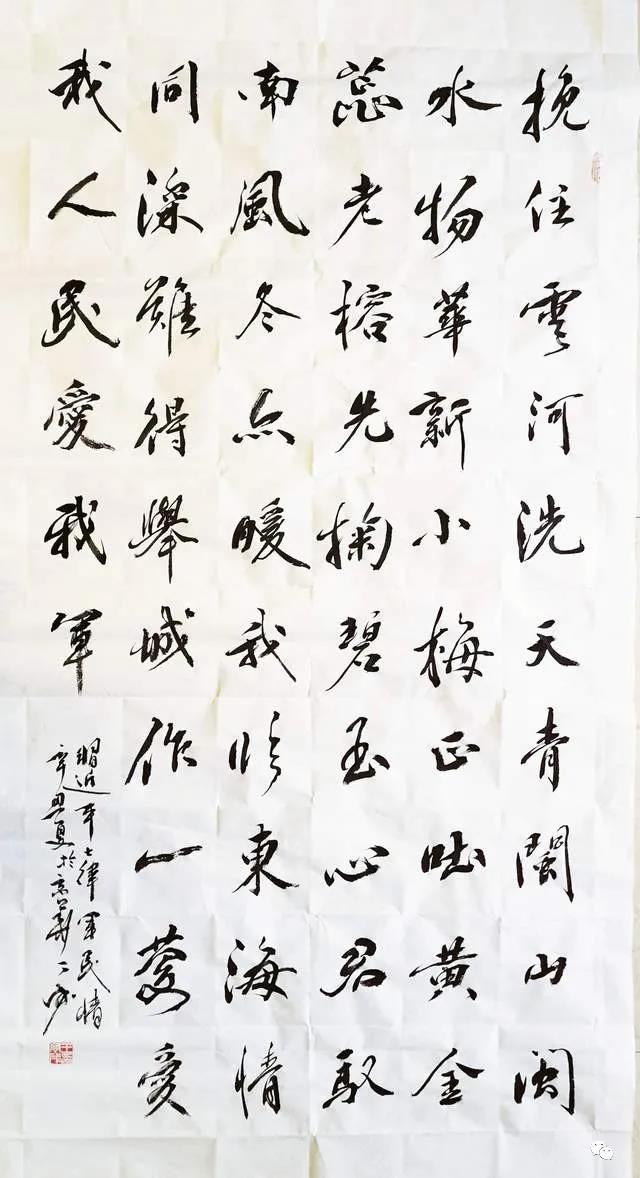 挽住雲河洗天青閩山閩
水物華新小梅正吐黃金
蕊老榕先掬碧玉心君馭
南風冬亦暖我临東海情
同深難得舉城作一慶愛
我人民愛我軍
習近平七律軍民情
辛丑夏於京華